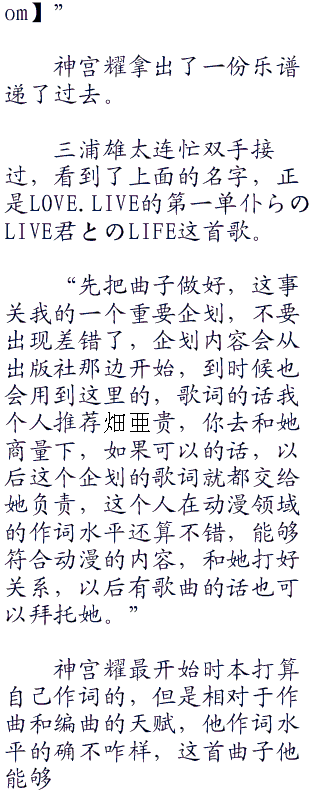 om】”
神宫耀拿出了一份乐谱
递了过去。
三浦雄太连忙双手接
过，看到了上面的名字，正
是LOVE.LIVE的第一单仆らの
LIVE君とのLIFE这首歌。
“先把曲子做好，这事
关我的一个重要企划，不要
出现差错了，企划内容会从
出版社那边开始，到时候也
会用到这里的，歌词的话我
个人推荐畑亜贵，你去和她
商量下，如果可以的话，以
后这个企划的歌词就都交给
她负责，这个人在动漫领域
的作词水平还算不错，能够
符合动漫的内容，和她打好
关系，以后有歌曲的话也可
以拜托她。”
神宫耀最开始时本打算
自己作词的，但是相对于作
曲和编曲的天赋，他作词水
平的确不咋样，这首曲子他
能够